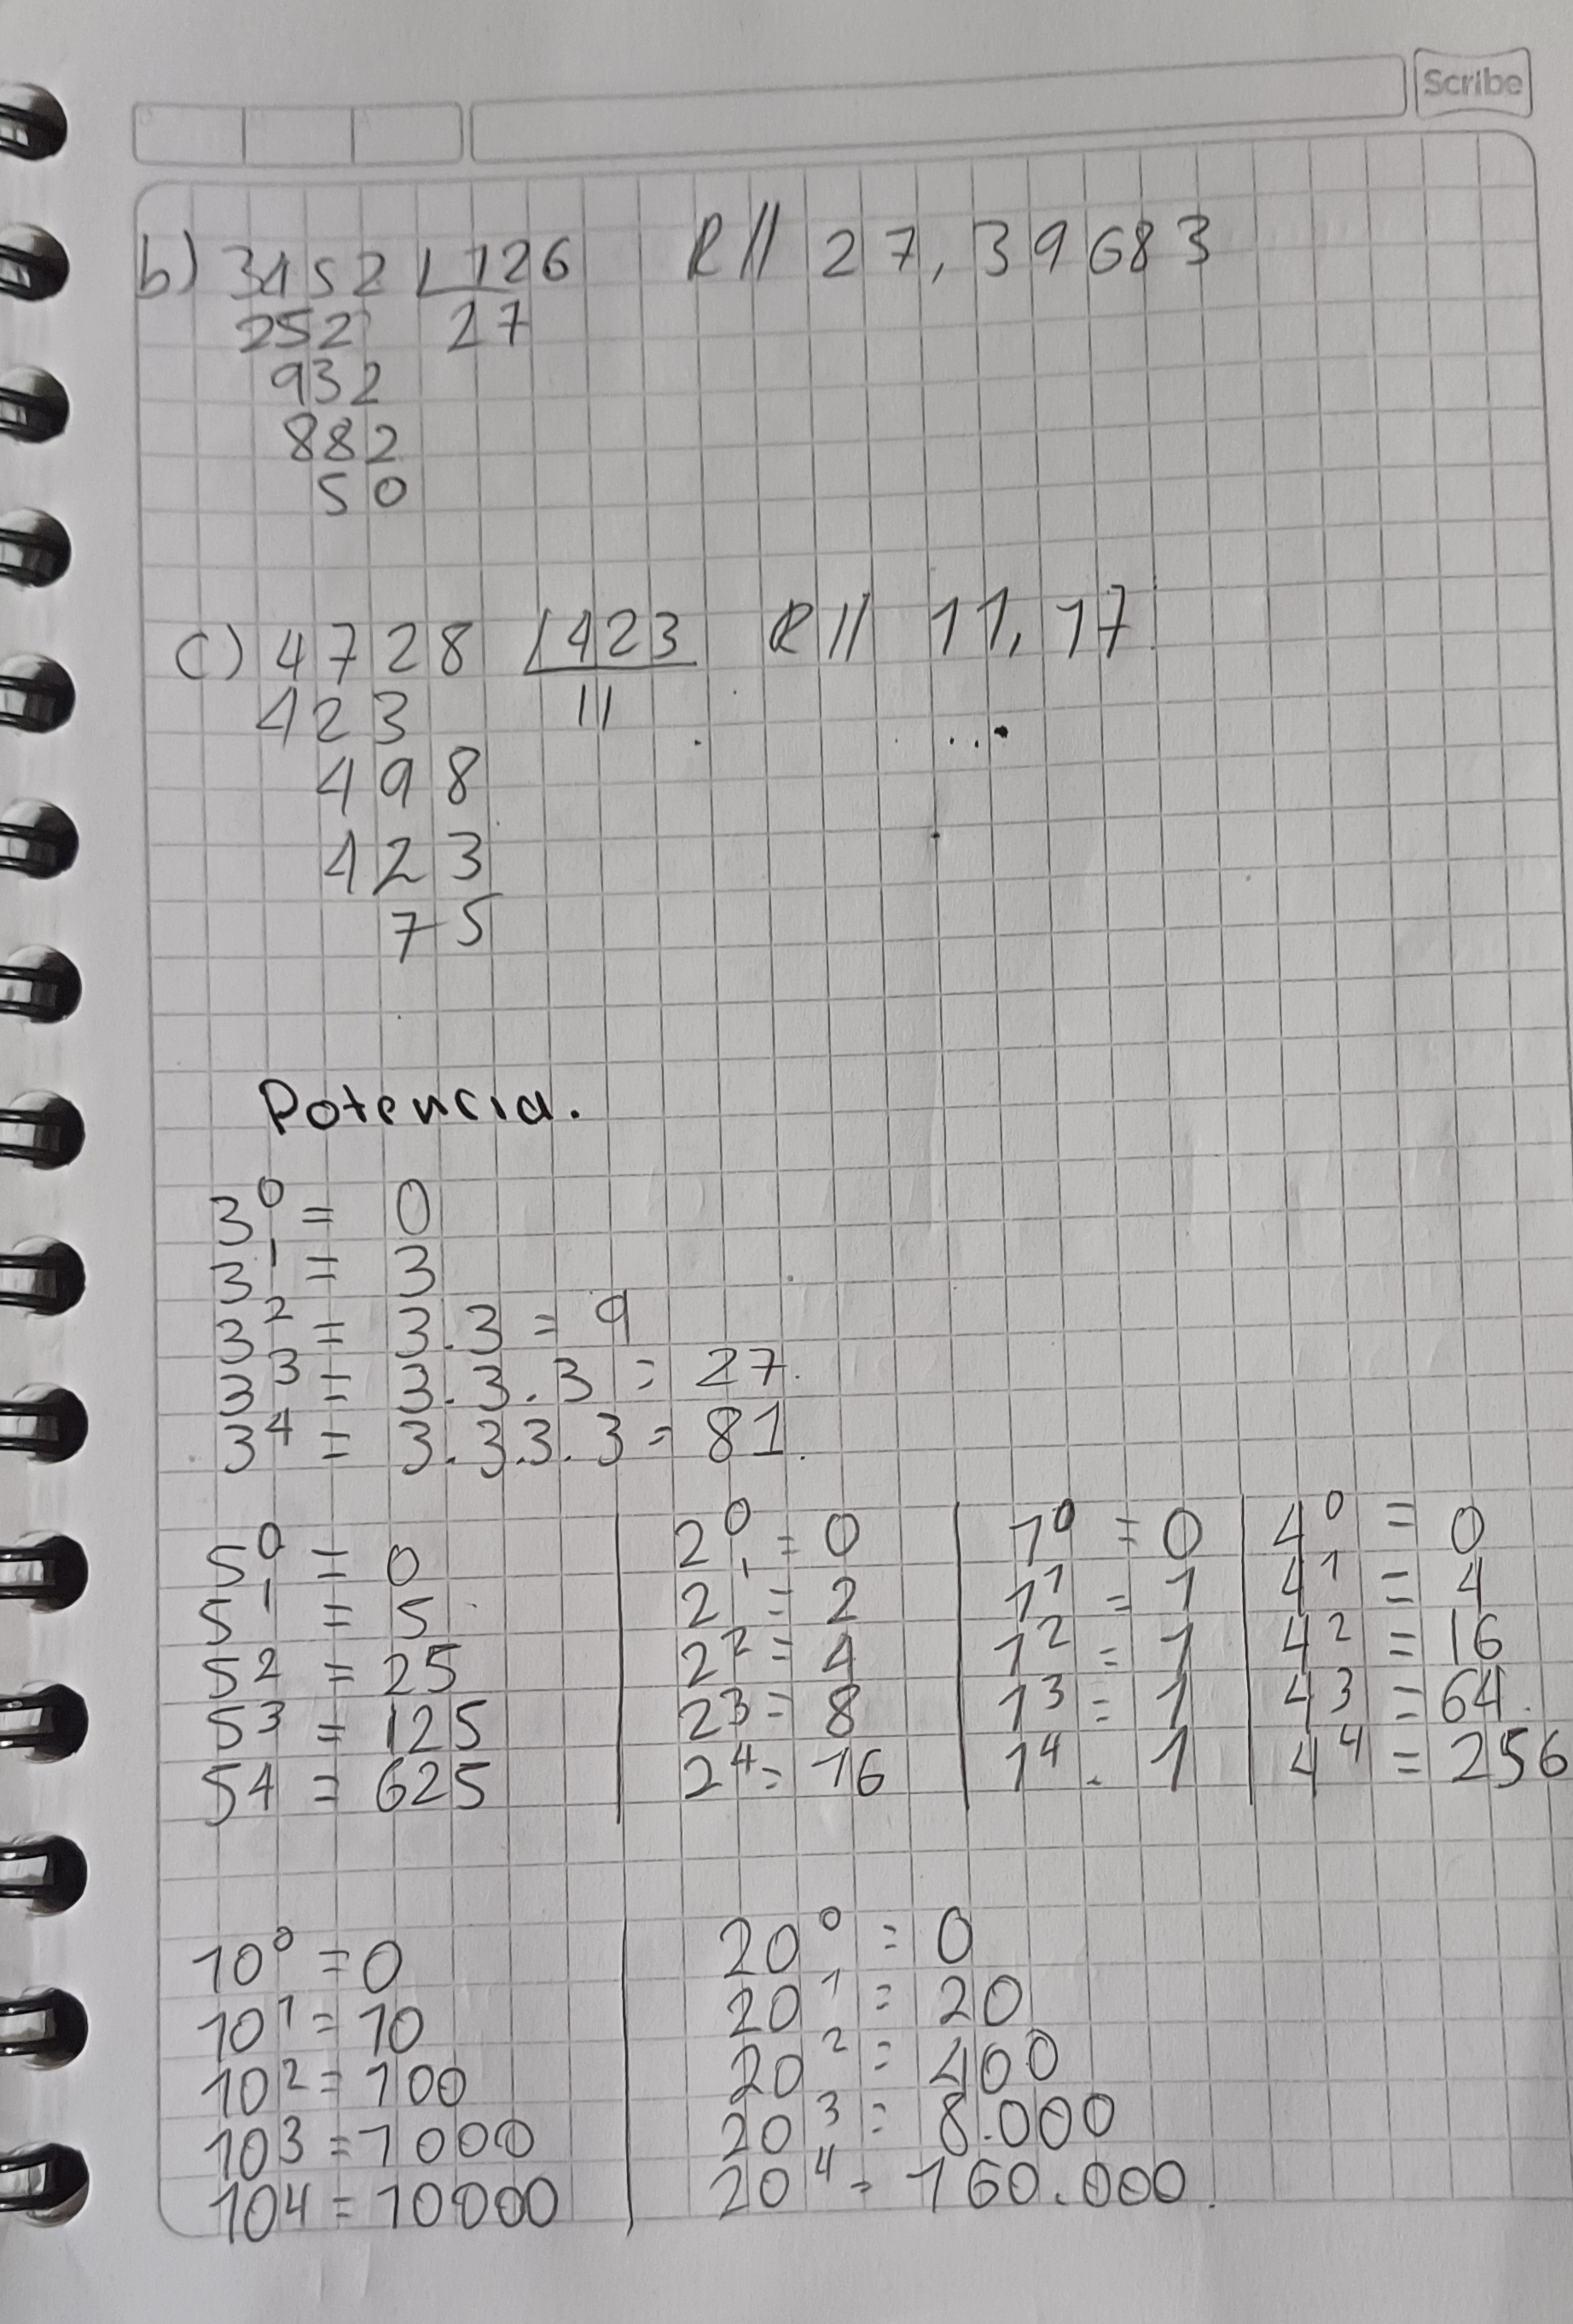 Scribe
b) 3452 126 R// 27,39683
252 27
932
882
50
c) 4728 423 R// 11,17
423 11
498
423
75
Potencia.
3⁰ = 0
3¹ = 3
3² = 3.3 = 9
3³ = 3.3.3 = 27.
3⁴ = 3.3.3.3 = 81.
5⁰ = 0
5¹ = 5
5² = 25
5³ = 125
5⁴ = 625
2⁰ = 0
2¹ = 2
2² = 4
2³ = 8
2⁴ = 16
1⁰ = 0
1¹ = 1
1² = 1
1³ = 1
1⁴ - 1
4⁰ = 0
4¹ = 4
4² = 16
4³ = 64.
4⁴ = 256
10⁰ = 0
10¹ = 10
10² = 100
10³ = 1000
10⁴ = 10000
20⁰ = 0
20¹ = 20
20² = 400
20³ = 8.000
20⁴ = 160.000.